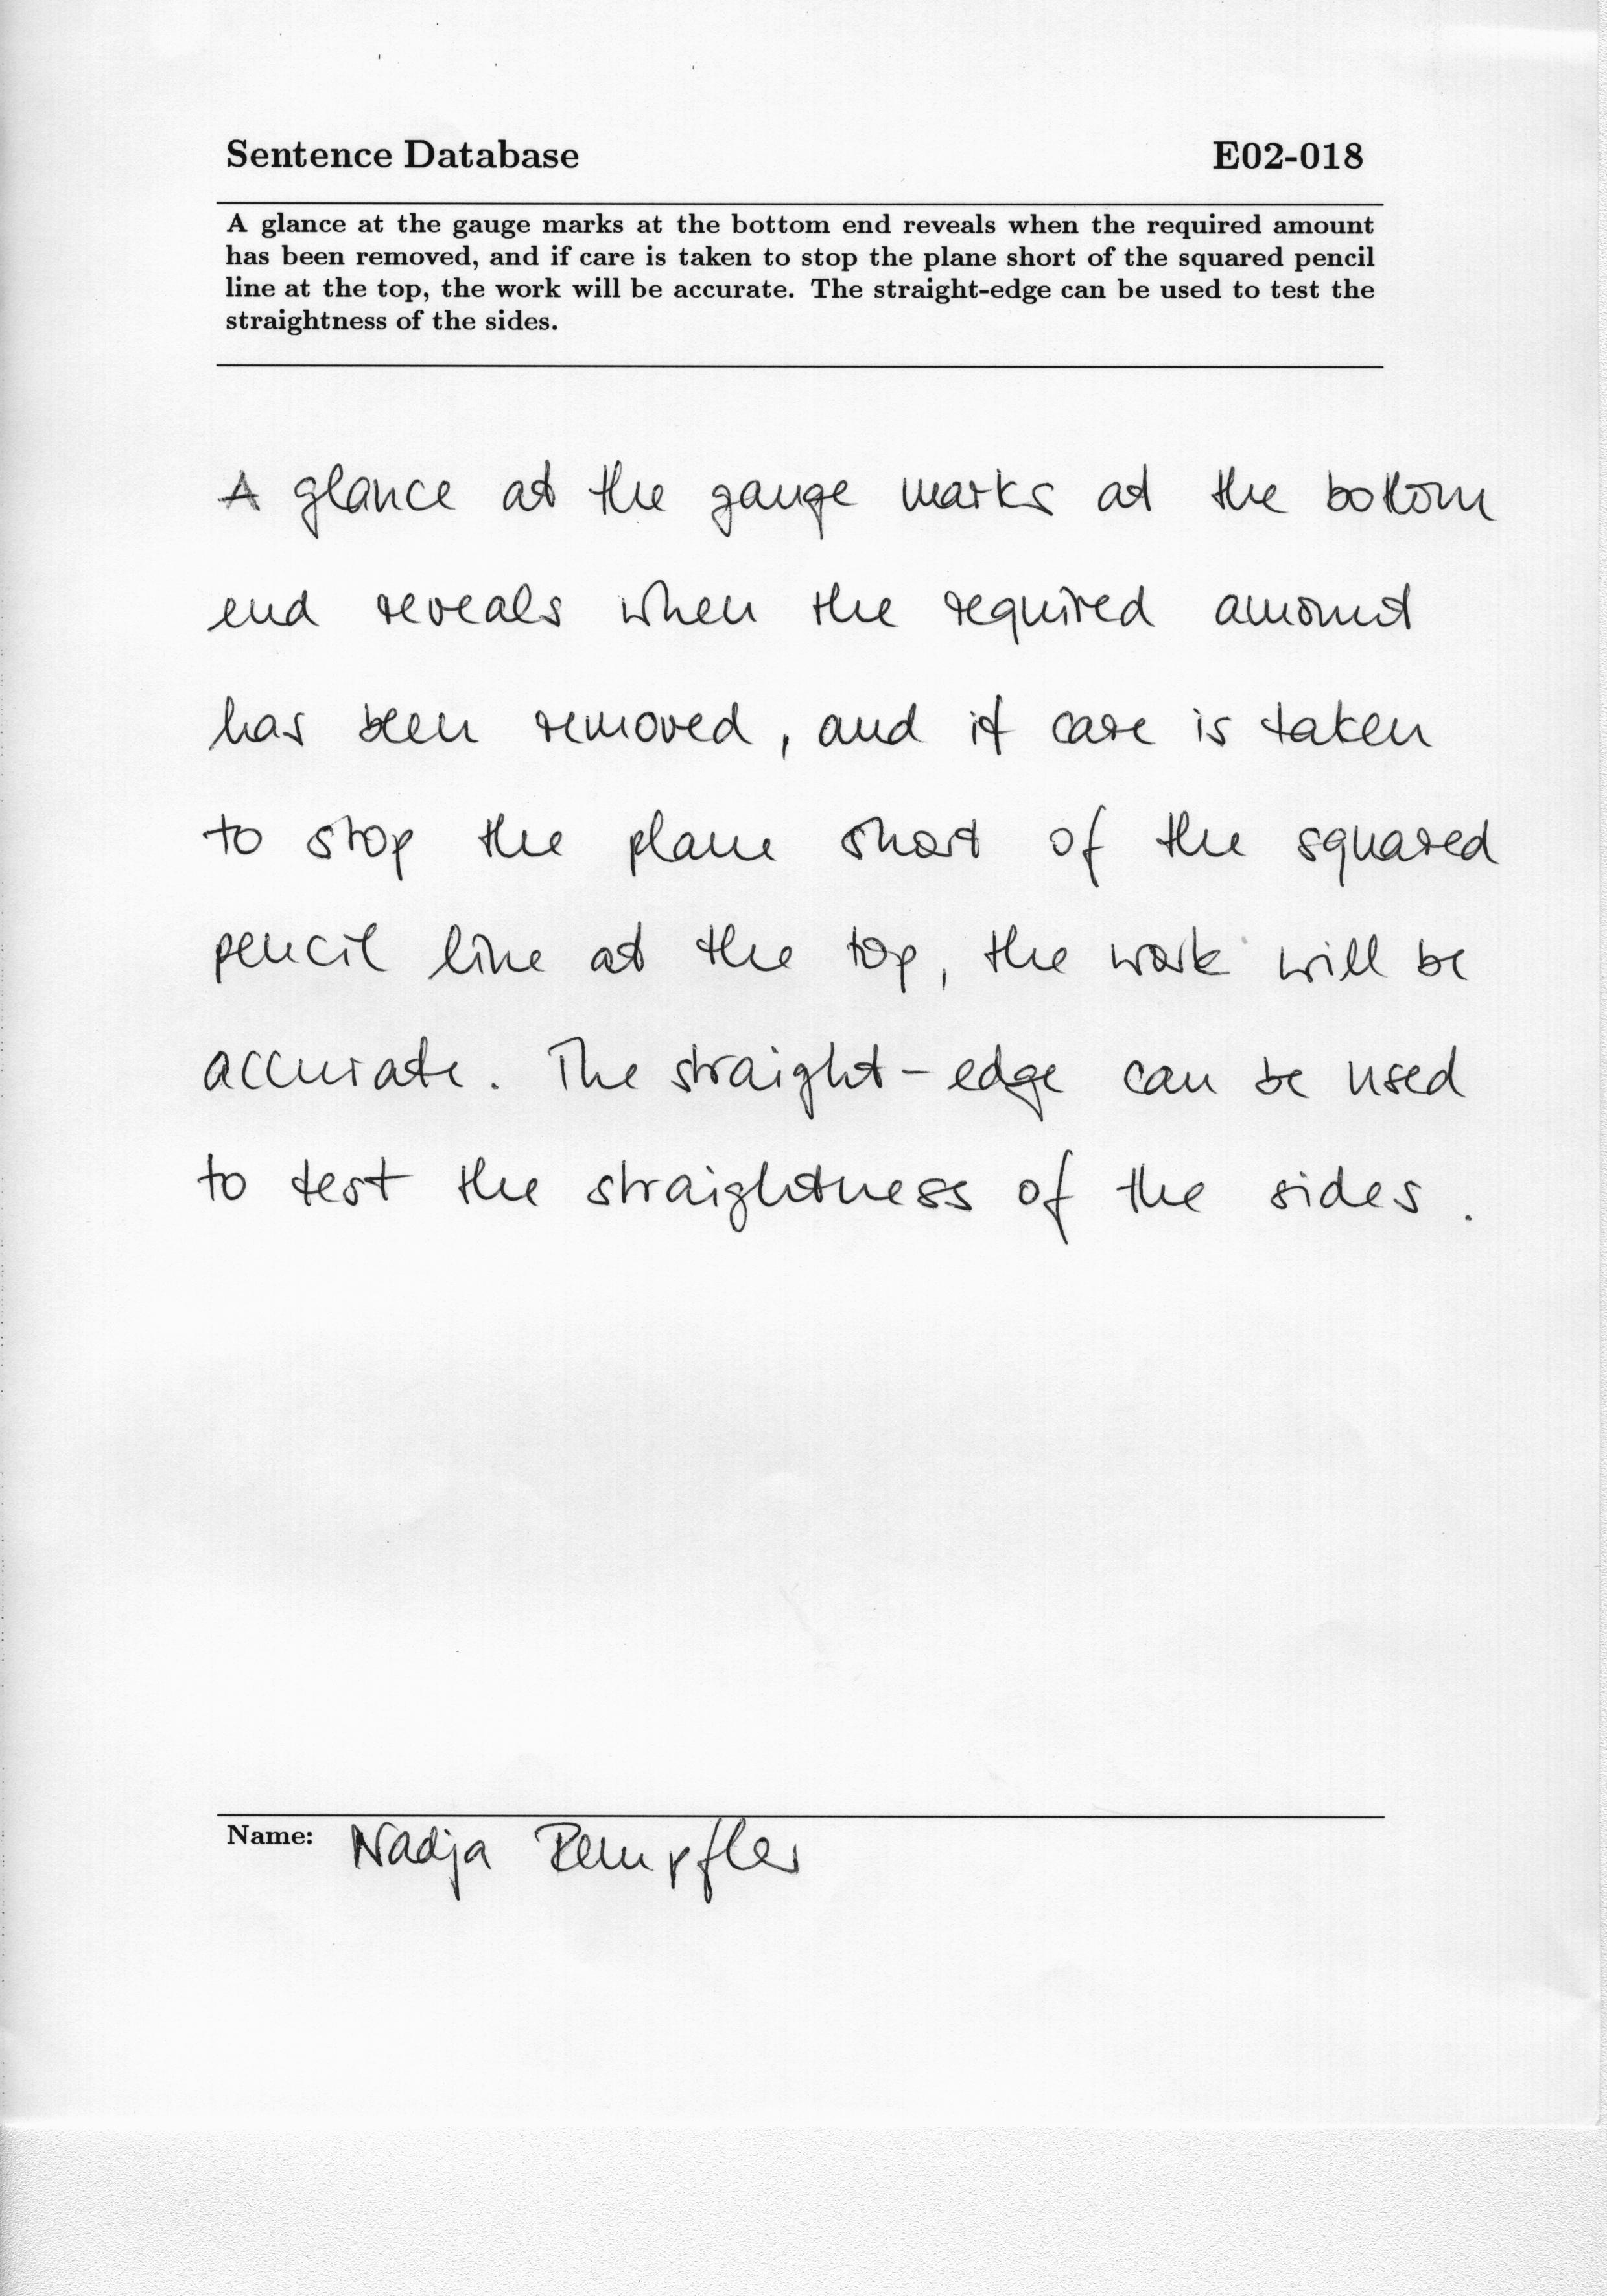 Sentence Database E02-018
A glance at the gauge marks at the bottom end reveals when the required amount
has been removed, and if care is taken to stop the plane short of the squared pencil
line at the top, the work will be accurate. The straight-edge can be used to test the
straightness of the sides.
A glance at the gauge marks at the bottom
end reveals when the required amount
has been removed, and if care is taken
to stop the plane short of the squared
pencil line at the top, the work will be
accurate. The straight-edge can be used
to test the straightness of the sides.
Name: Nadja Rempfler